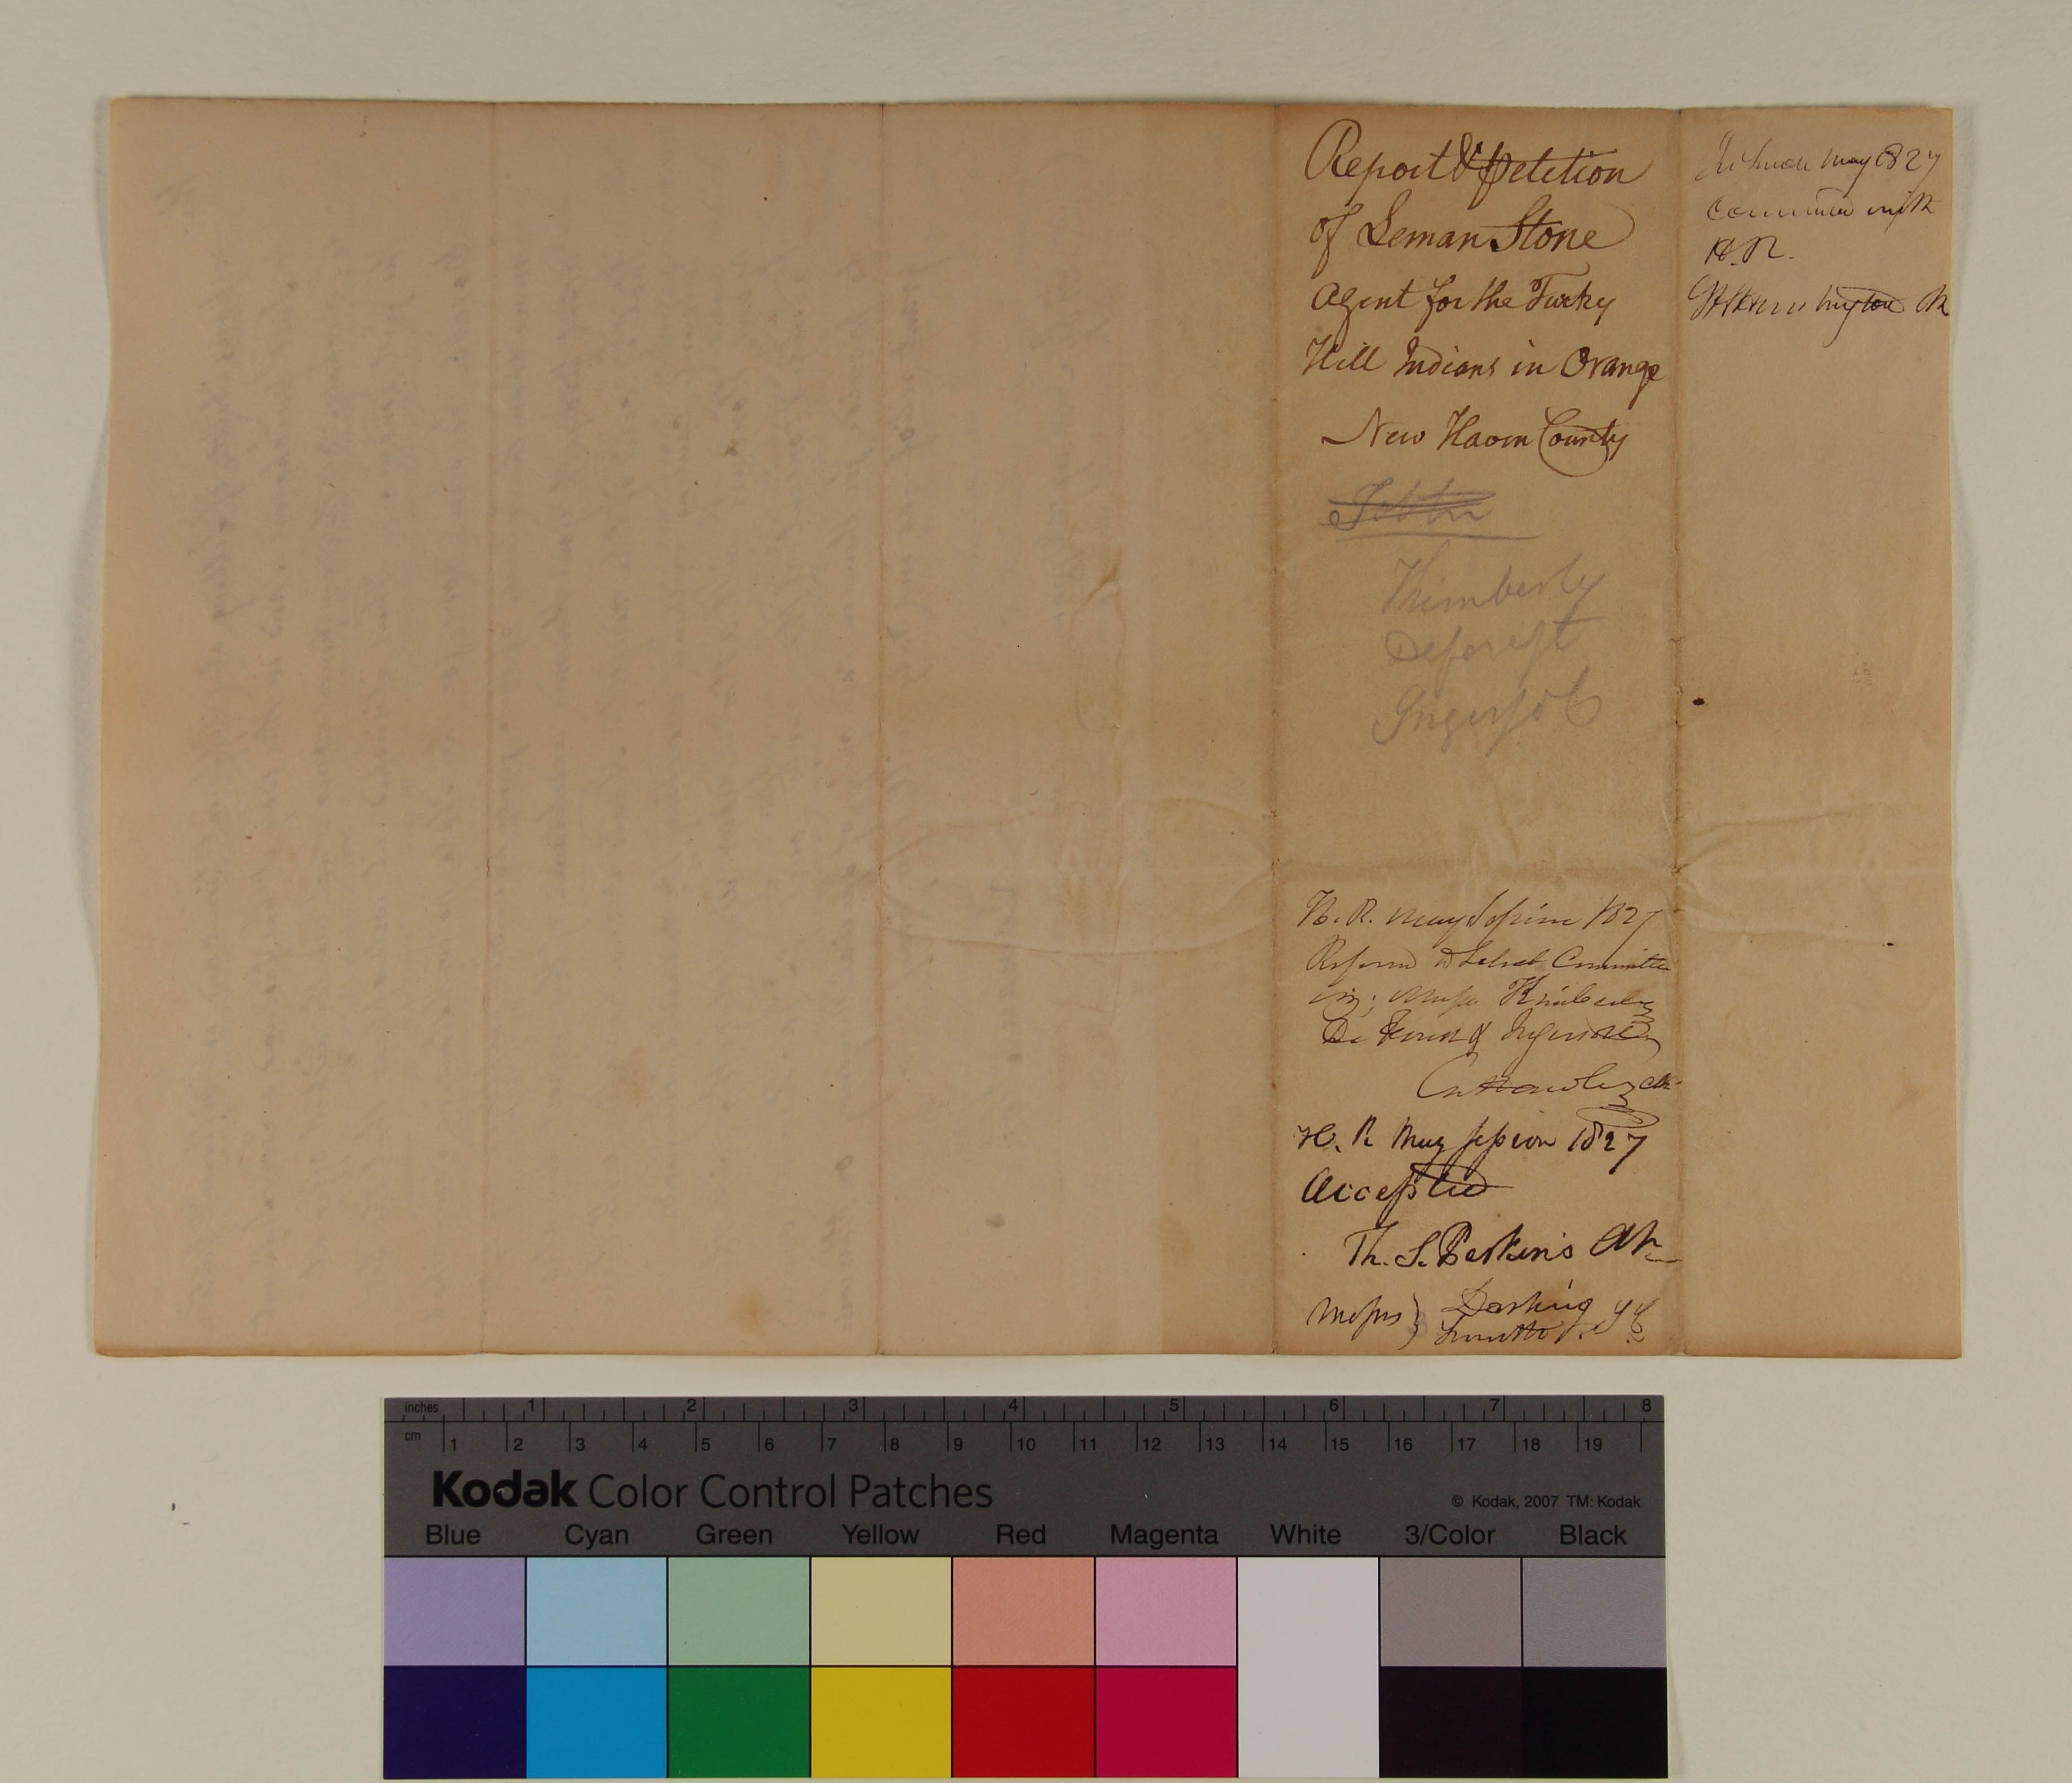 Report & petition
of Leman Stone
Agent for the Turky
Hill Indians in Orange
New Haven County
Kimberly
Deforest
Ingersol
H. R. May Session 1827
Referred to Select Committee
viz; Messrs Kimberly
De Forest & Ingersoll
Clk
H. R. May Session 1827
Accepted
Th. S. Perkins Clk
Messrs }
In Senate May 1827
Concurred with
H. R.
inches 1 2 3 4 5 6 7 8
cm 1 2 3 4 5 6 7 8 9 10 11 12 13 14 15 16 17 18 19
Kodak Color Control Patches
© Kodak, 2007 TM: Kodak
Blue Cyan Green Yellow Red Magenta White 3/Color Black